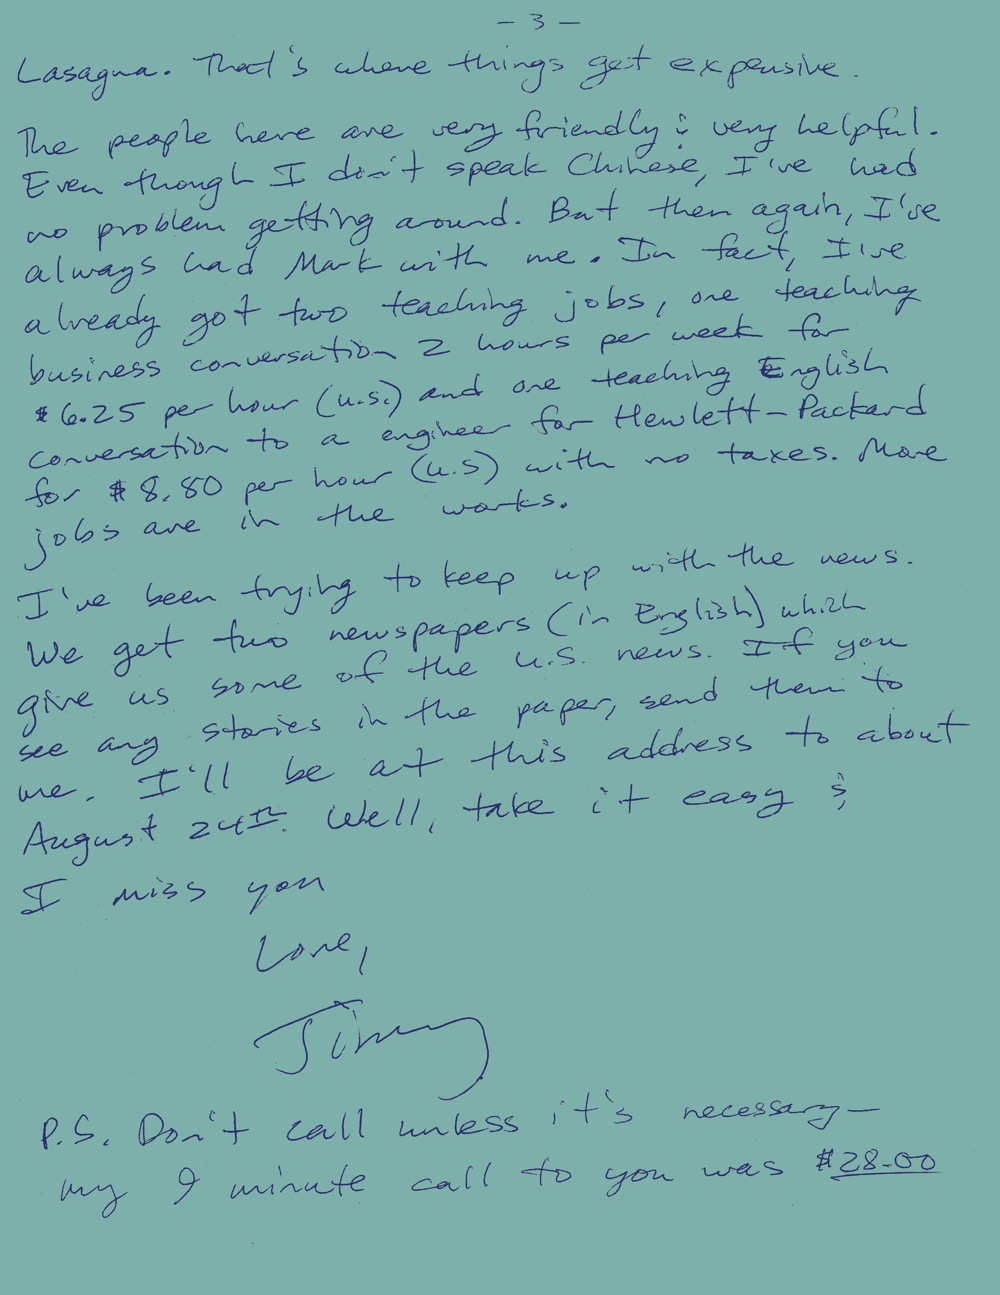 - 3 -
Lasagna. That's where things get expensive.
The people here are very friendly & very helpful.
Even though I don't speak Chinese, I've had
no problem getting around. But then again, I've
always had Mark with me. In fact, I've
already got two teaching jobs, one teaching
business conversation 2 hours per week for
$6.25 per hour (u.s.) and one teaching English
conversation to a engineer for Hewlett-Packard
for $8.80 per hour (u.s) with no taxes. More
jobs are in the works.
I've been trying to keep up with the news.
We get two newspapers (in English) which
give us some of the U.S. news. If you
see any stories in the paper, send them to
me. I'll be at this address to about
August 24th. Well, take it easy &
I miss you
Love,
Jimmy
P.S. Don't call unless it's necessary—
my 9 minute call to you was $28.00